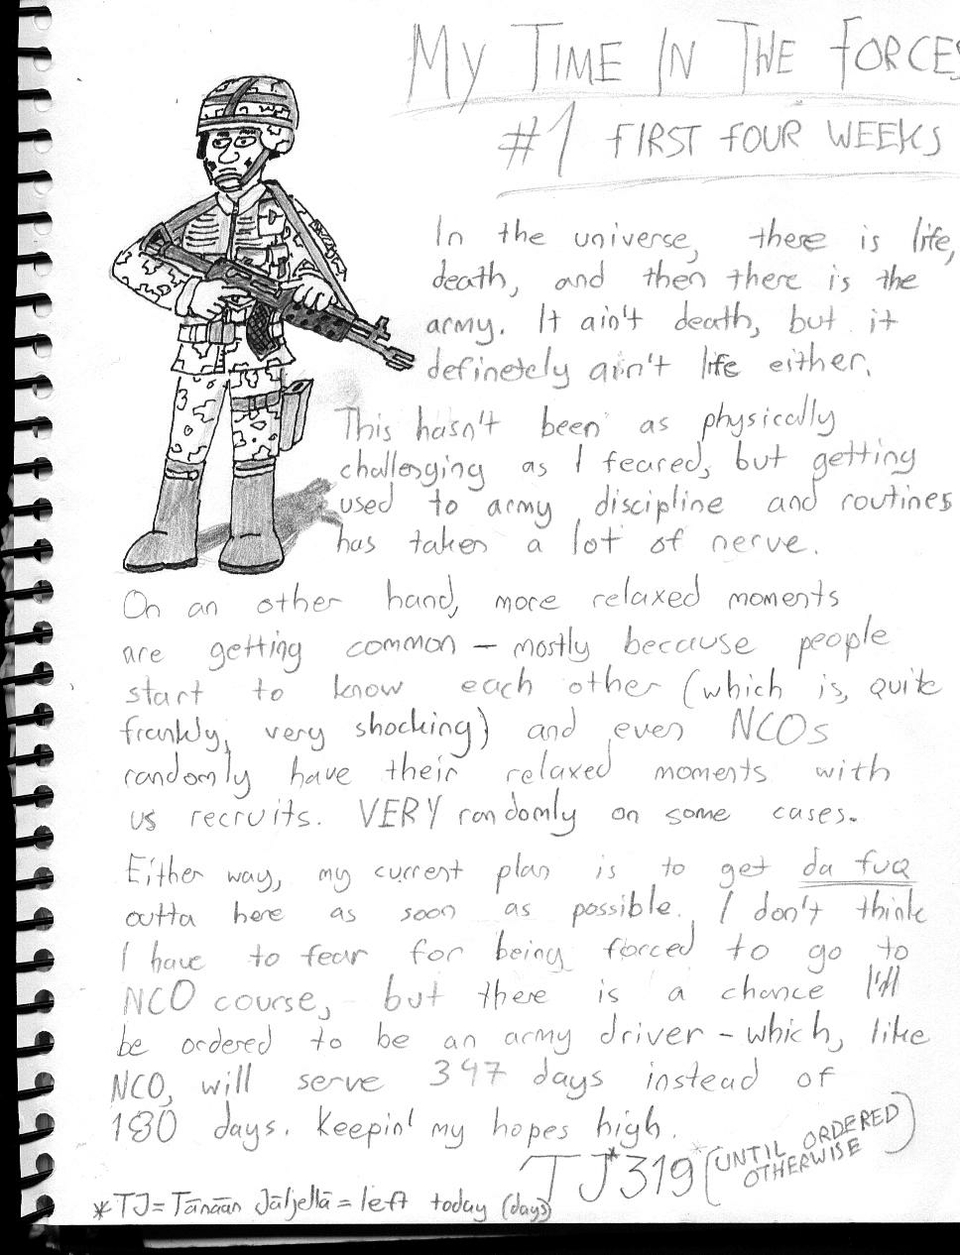 MY TIME IN THE FORCES
#1 FIRST FOUR WEEKS
In the universe, there is life,
death, and then there is the
army. It ain't death, but it
definetely ain't life either.
This hasn't been as physically
challenging as I feared, but getting
used to army discipline and routines
has taken a lot of nerve.
On an other hand, more relaxed moments
are getting common – mostly because people
start to know each other (which is, quite
frankly, very shocking) and even NCOs
randomly have their relaxed moments with
us recruits. VERY randomly on some cases.
Either way, my current plan is to get da fuq
outta here as soon as possible. I don't think
I have to fear for being forced to go to
NCO course, but there is a chance I'll
be ordered to be an army driver – which, like
NCO, will serve 347 days instead of
180 days. Keepin' my hopes high.
TJ*319 (UNTIL ORDERED
OTHERWISE)
*TJ = Tänään Jäljellä = left today (days)